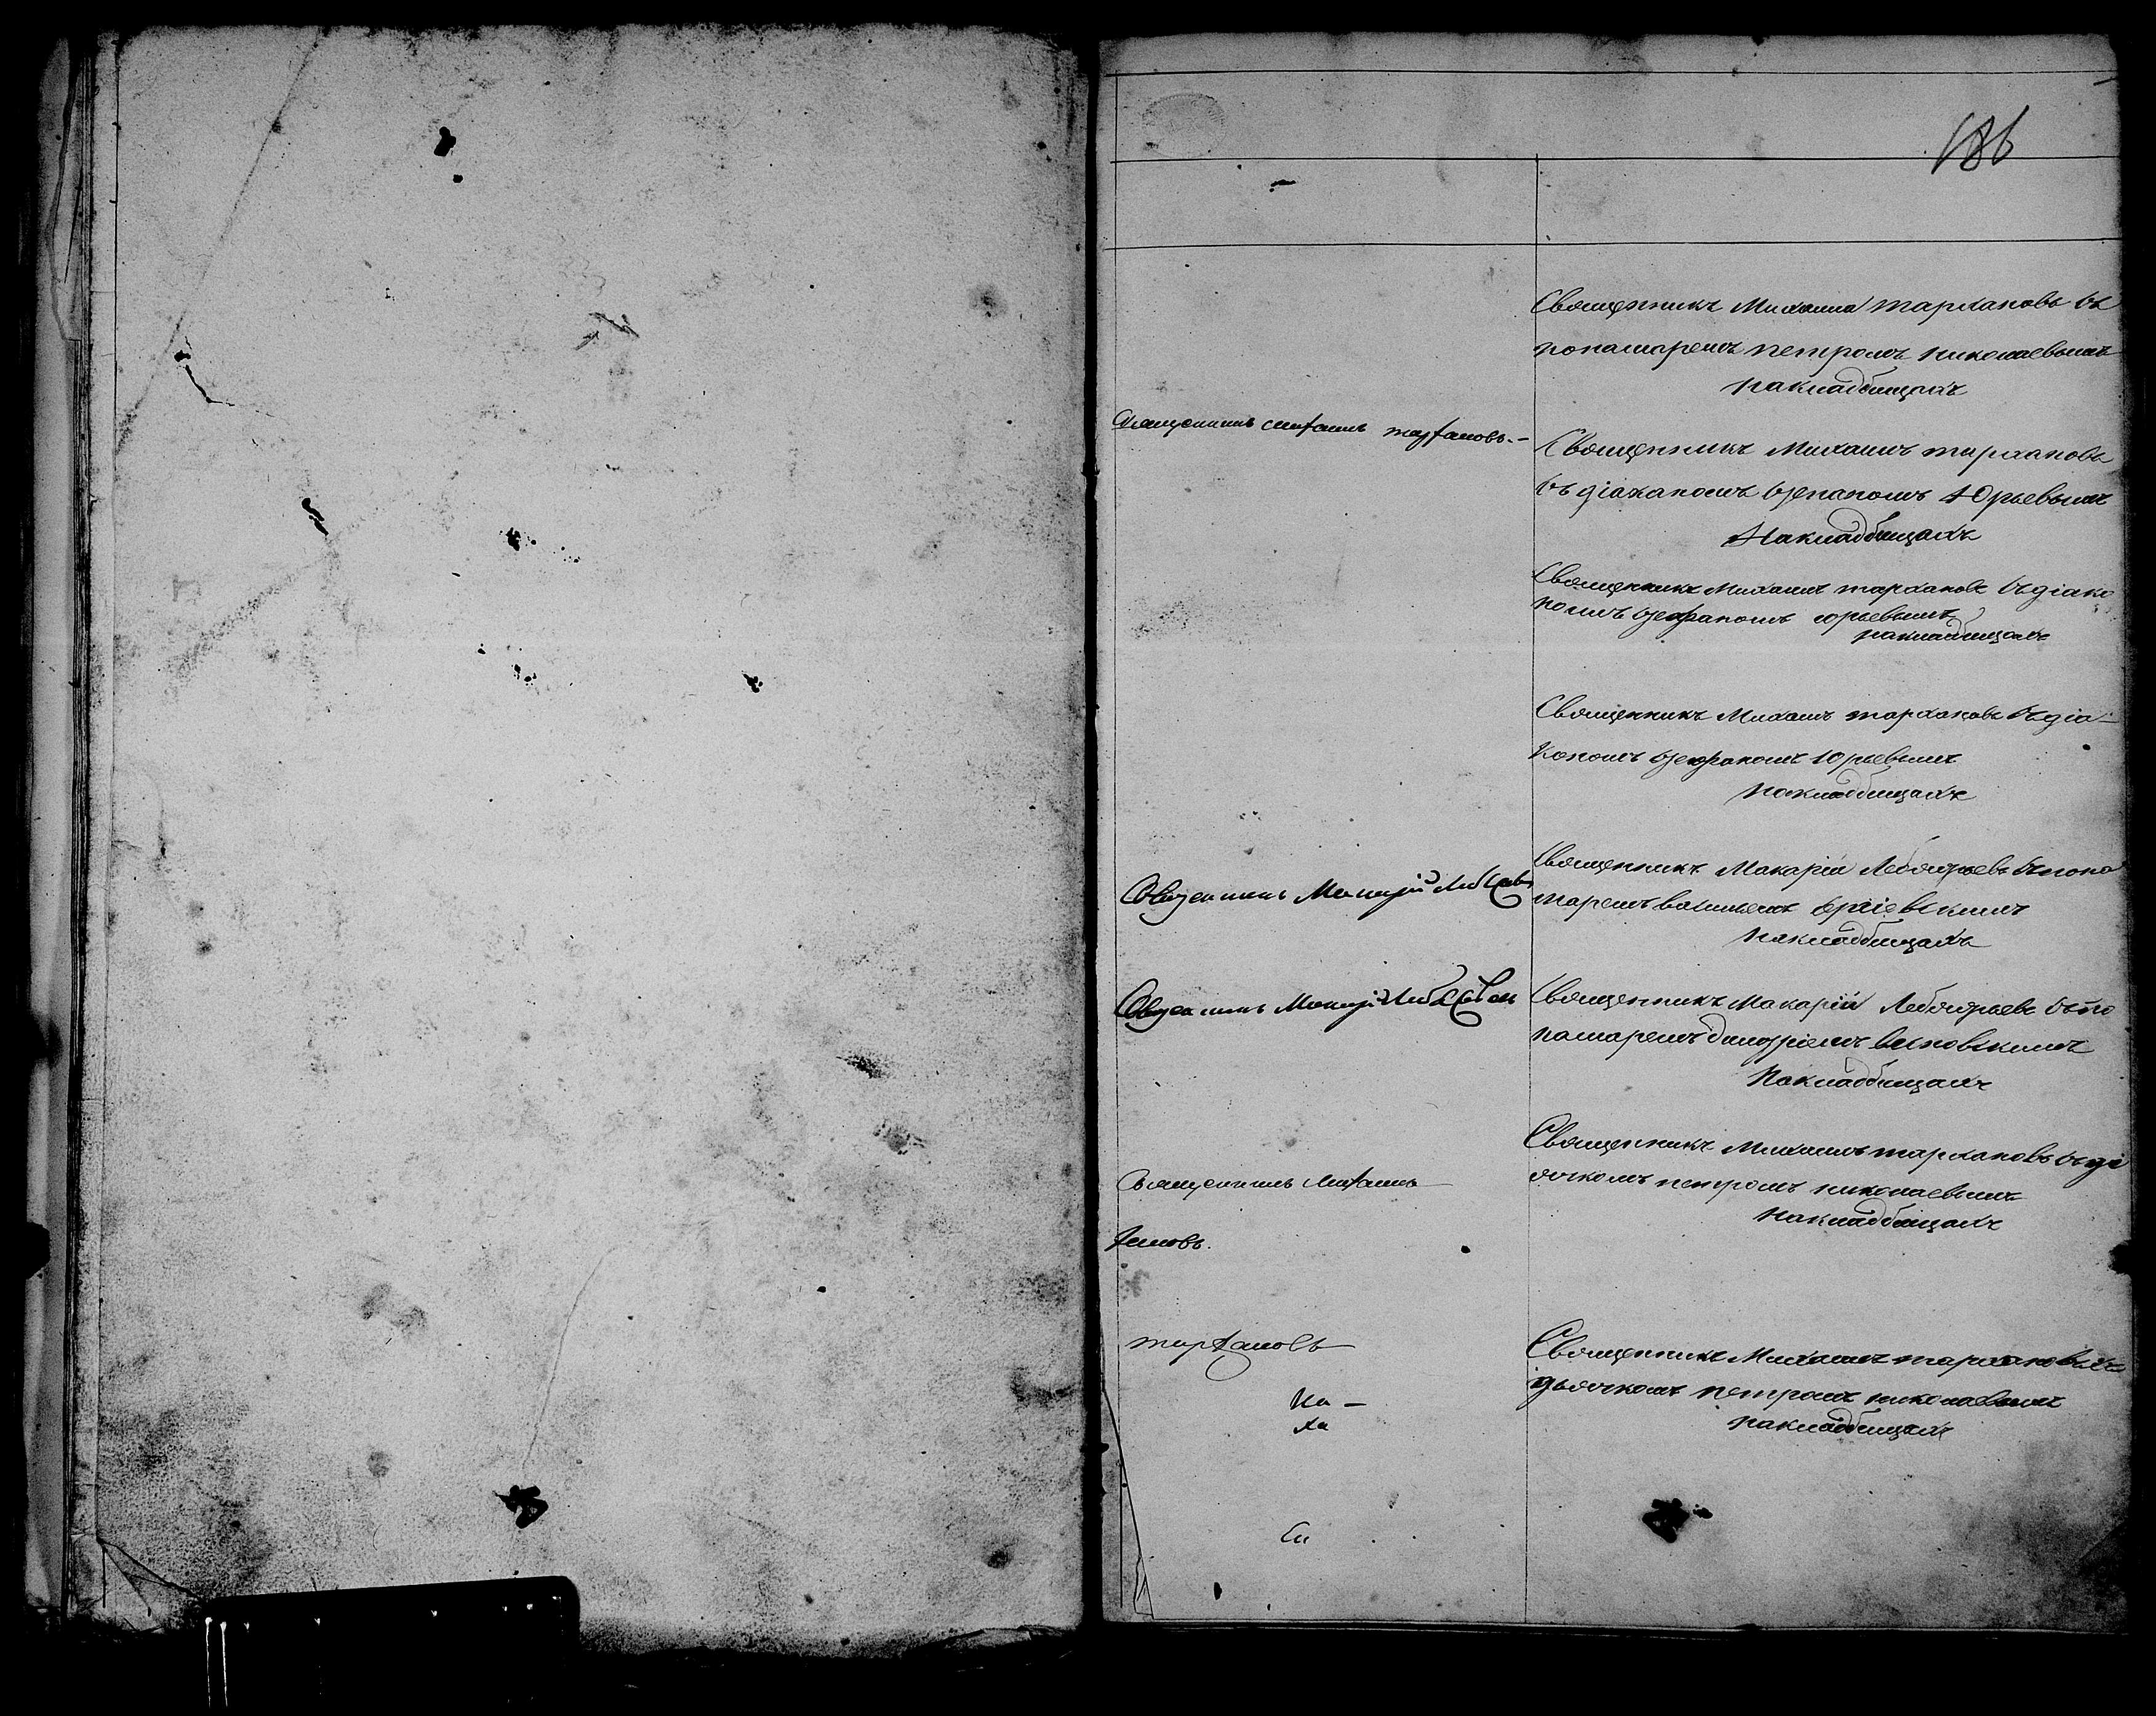 186
Священникъ Михаилъ тархановъ съ
понамаремъ петромъ николаевымъ
накладбищахъ
Священникъ Михаилъ тархановъ.-
Священникъ Михаилъ тархановъ
съ діаканомъ стефаномъ Юрьевымъ
Накладбищахъ
Священникъ Михаилъ тархановъ съ діако
номъ стефаномъ юрьевымъ
накладбищахъ
Священникъ Михаилъ тархановъ съ діа-
кономъ стефаномъ Юрьевымъ
накладбищахъ
Священникъ Макарій
Священникъ Макарій съ пона
маремъ
накладбищахъ
Священникъ Макарій
Священникъ Макарій съ по
намаремъ
Накладбищахъ
Священникъ Михаилъ тархановъ съ дь
ячкомъ петромъ николаевымъ
накладбищахъ
Священникъ Михаилъ
хановъ.
тархановъ
Священникъ Михаилъ тархановъ съ
дьячкомъ петромъ николаевымъ
накладбищахъ
На -
ха